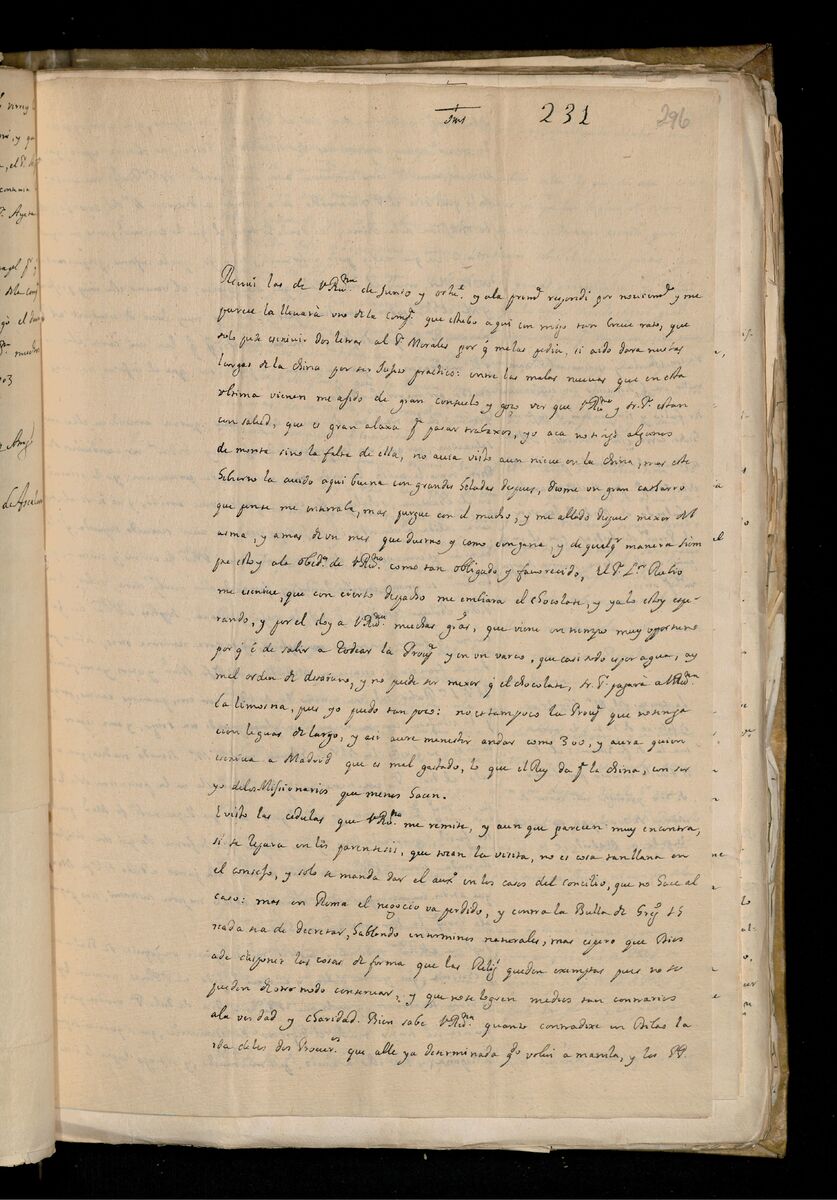 231
296
Recivi las de V Rma. de Junio y octe. y ala primª respondi por noviembre y me
parece la llevarà uno de la Compª. que estubo aqui con migo tan breve rato, que
solo pude escrivir dos letras al Pe. Morales por q̃ melas pedia, si aido dara nuevas
largas de la china por ser sugeto practico: entre las malas nuevas que en esta
ultima vienen me asido de gran consuelo y goço ver que V Rma. y sr. Pe. estan
con salud, que es gran alaxa pª. pasar trabaxos, yo aca no tengo algunos
de monte sino la falta de ella, no avia visto aun nieve en la china, mas este
hibierno la avido aqui buena con grandes heladas despues, diome un gran catarro
que pense me enterraba, mas purgue con el mucho, y me allado despues mexor del
asma, y amas de un mes que duermo y como con gana, y de qualqr. manera siem
pre estoy ala obedª. de V Rma. como tan obligado y favorecido, El Pe. Ldor. Rubio
me escrive, que con cierto despacho me embiara el chocolate, y ya lo estoy espe
rando, y por el doy a V Rma. muchas grãs, que viene en tiempo muy oportuno
por q̃ è de salir a rodear la Provª y en un varco, que casi todo es por agua, ay
mal orden de desaiuno, y no puede ser mexor q̃ el chocolate, sr. Pe. pagarà a V Rma.
la limosna, pues yo puedo tan poco: no es tampoco la Provª que no tenga
cien leguas de largo, y asi avre menester andar como 300, y avra quien
escriva a Madrid que es mal gastado, lo que el Rey da pª. la china, con ser
yo delos Missionarios que menos hacen.
E visto las cedulas que V Rma. me remite, y aun que parecen muy en contra,
si se repara en los parentesis, que tocan la visita, no es cosa tan llana en
el consejo, y solo se manda dar el auxº. en los casos del concilio, que no hace al
caso: mas en Roma el negocio va perdido, y contra la Bulla de Gregº 15
nada sea de decretar, hablando en terminos naturales, mas espero que Dios
ade disponer las cosas de forma que las Religˢ queden exemptas pues no se
pueden de otro modo conservar, y que no se logren medios tan contrarios
ala verdad y charidad. Bien sabe V Rma. quanto contradixe en Pilas la
ida delos dos Procures. que alle ya determinada qdo. volvi a manila, y los PP.